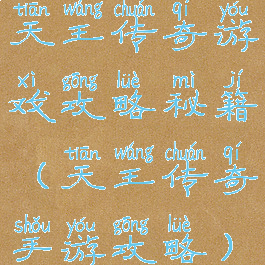 tiān wáng chuán qí yóu
天王传奇游
xì gōng lüè mì jí
戏攻略秘籍
tiān wáng chuán qí
（天王传奇
shǒu yóu gōng lüè
手游攻略）